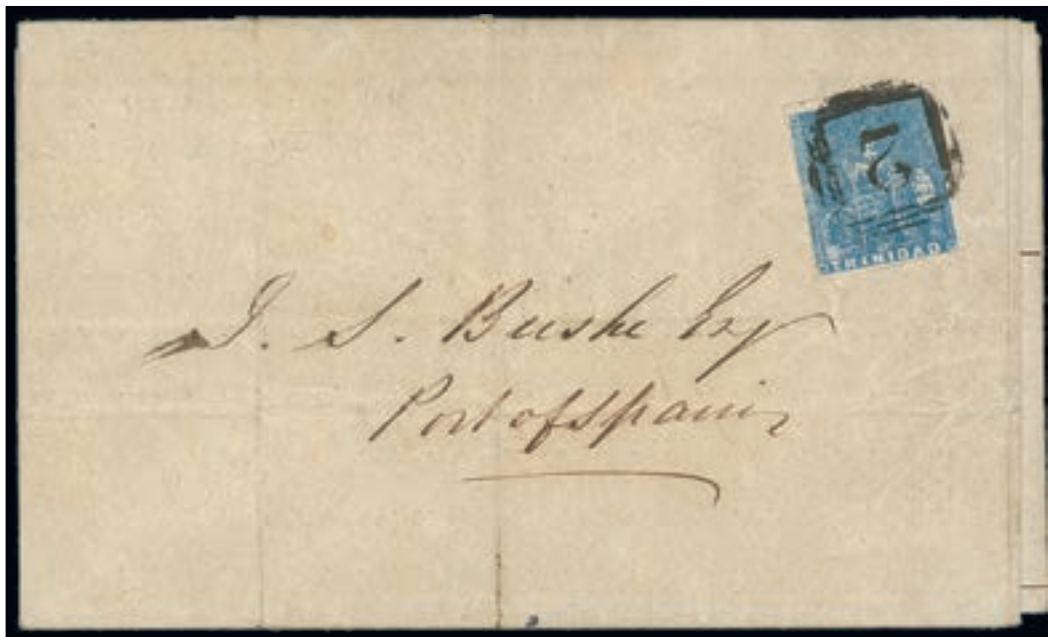 2
TRINIDAD
J. S. Bushe Esq
Port of Spain